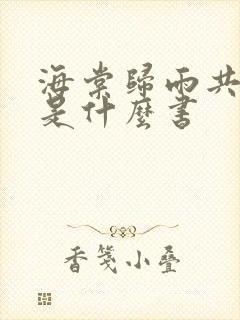 海棠歸雨共
是什麼書
香箋小疊